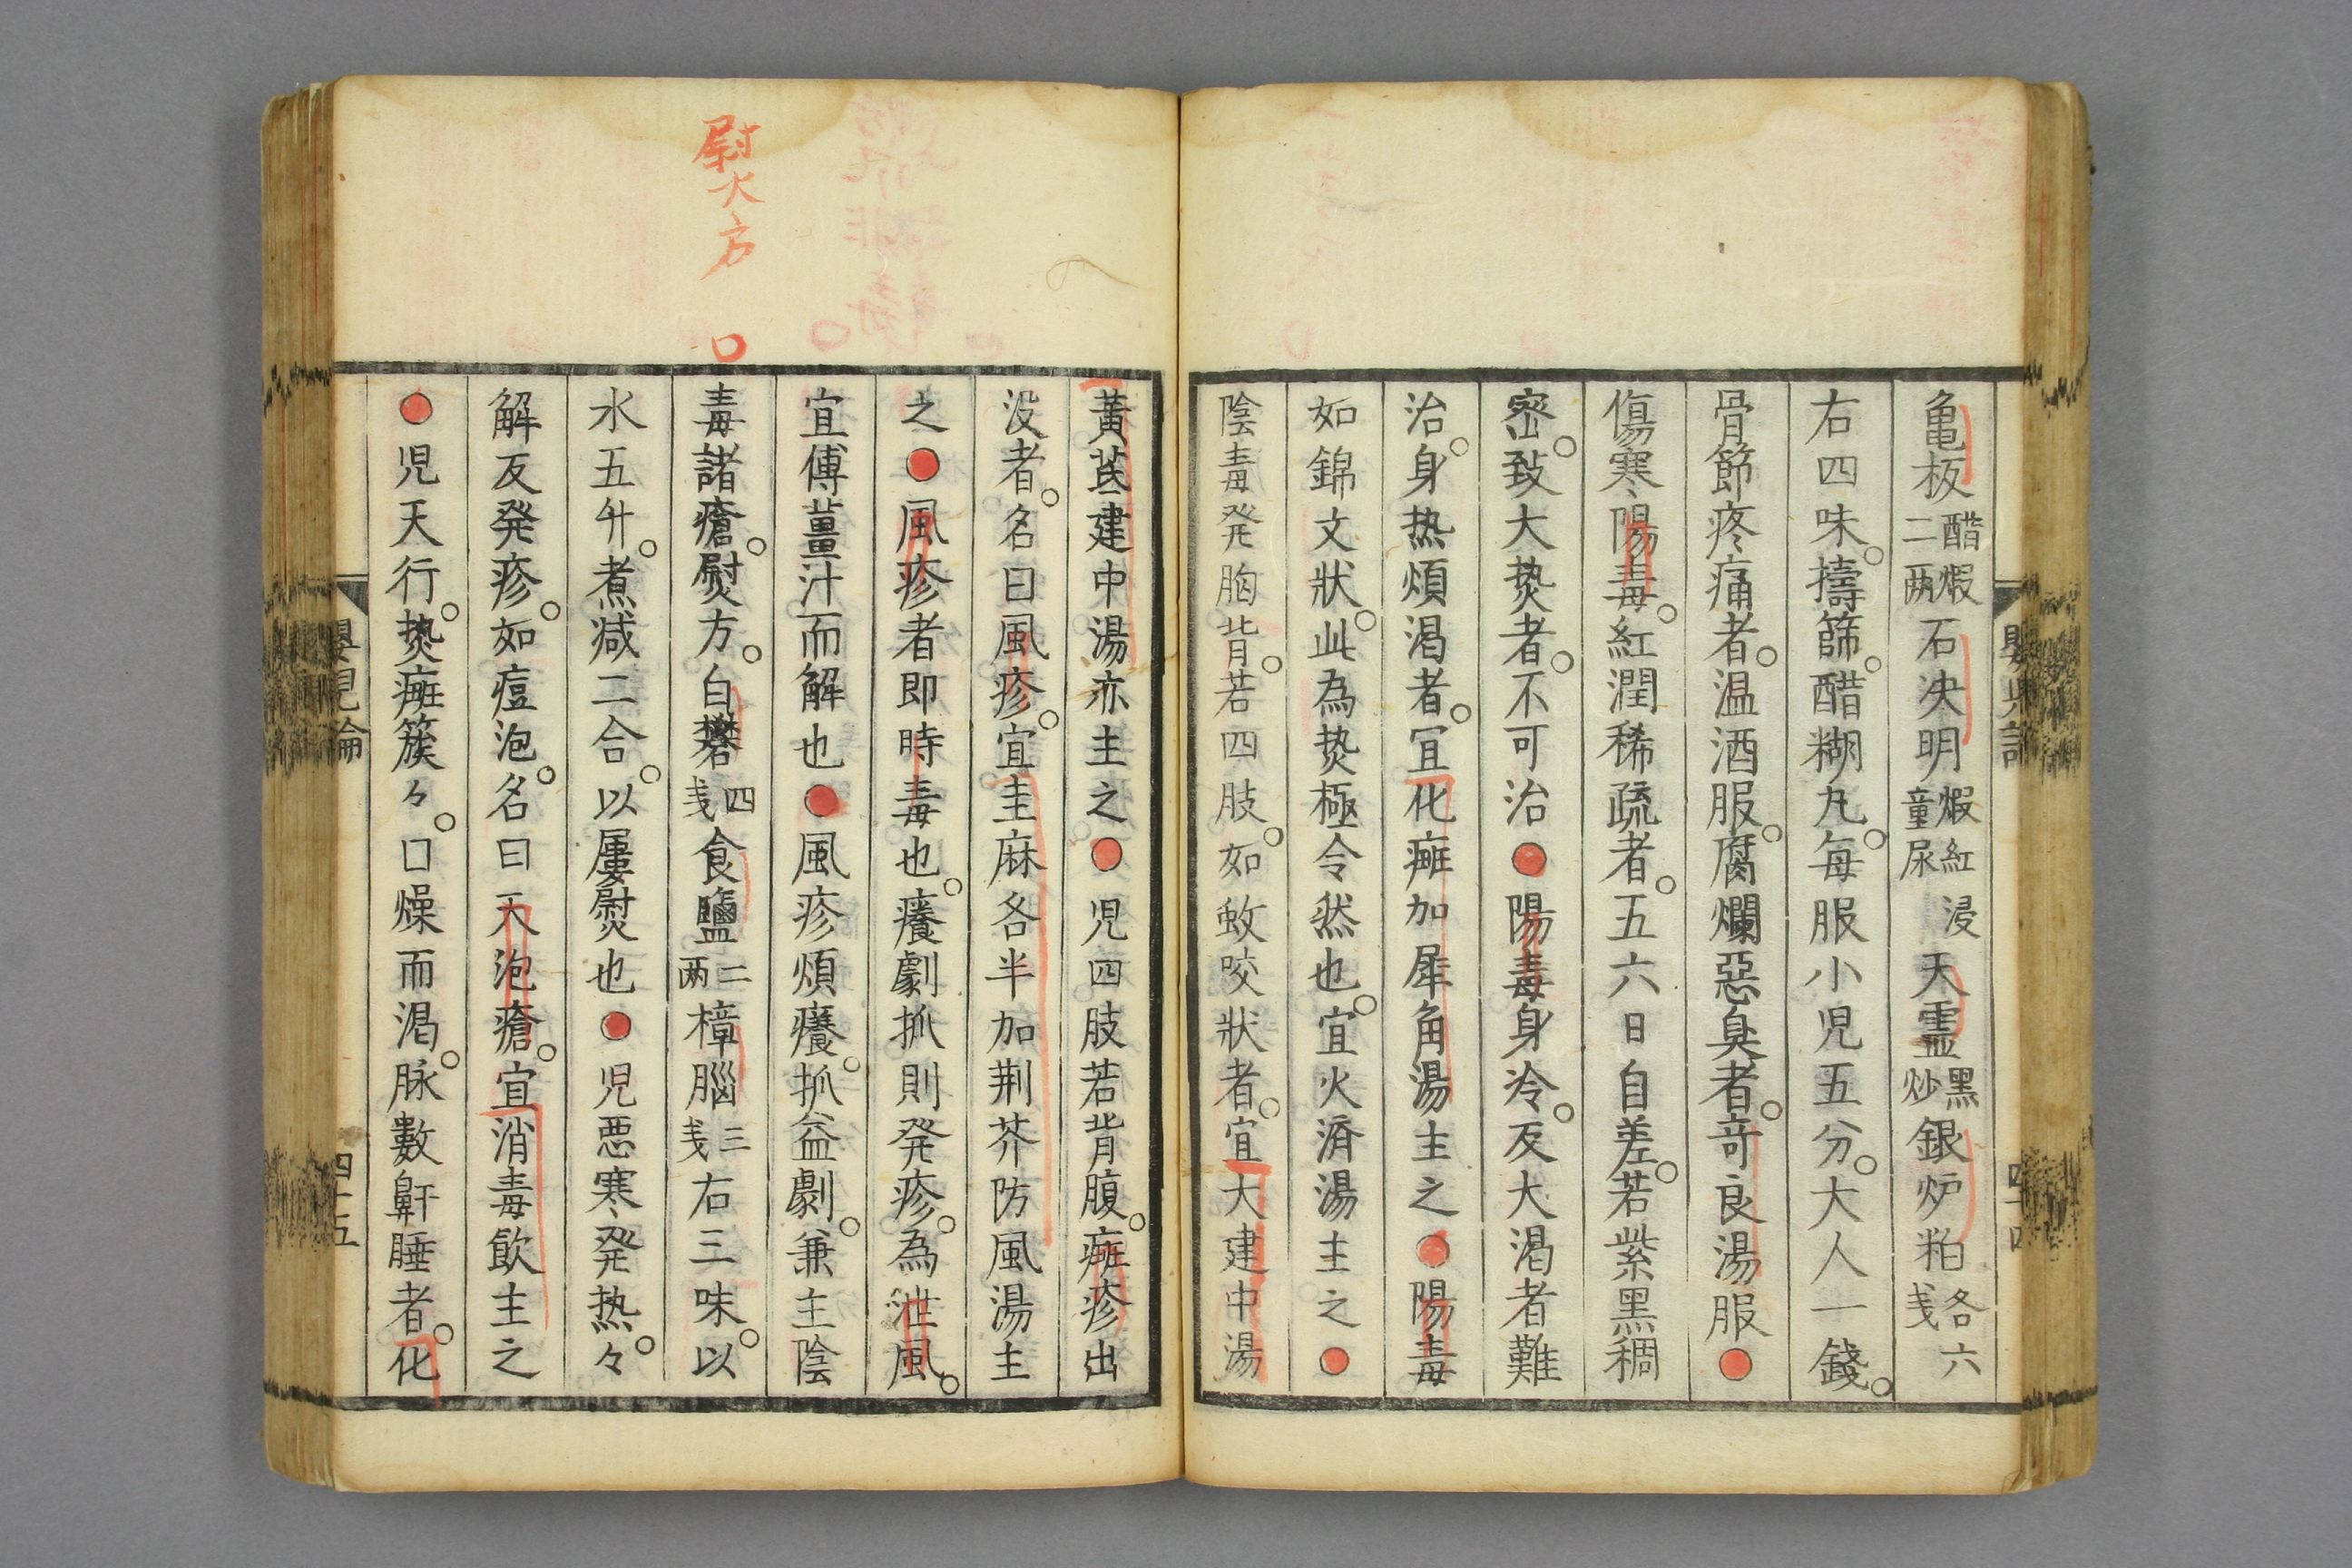 亀板醋煆二两石决明煆紅浸童尿天霊黑炒銀炉粕各六戋
右四味。擣篩。醋糊丸。每服小児五分。大人一錢。
骨節疼痛者。温酒服。腐爛惡臭者。奇良湯服●
傷寒、陽毒。紅潤稀疏者。五六日自差。若紫黑稠
宻。致大𤍠者。不可治●陽毒身冷。反大渇者難
治。身热煩渇者。冝化癍加犀角湯主之●陽毒
如錦文狀。此為𤍠極令然也。宜火濟湯主之●
陰毒発胸背。若四肢。如蚊咬状者。宜大建中湯
嬰児論
四十四
黄茋建中湯亦主之●児四肢若背腹。癍疹出
没者。名曰風疹。宜圭麻各半加荆芥防風湯主
之●風疹者即時毒也。癢劇抓則発疹。為泄風。
宜傅薑汁而解也●風疹煩癢。抓益劇。兼主陰
熨方
毒諸瘡。熨方。白礬四戋食鹽二两樟腦三戋右三味。以
水五升。煮减二合。以屢熨也●児悪寒、発热々。
解反発疹。如痘泡。名曰天泡瘡。宜消毒飲主之
●児天行。𤍠癍簇々。口燥而渇。脉數鼾睡者。化
嬰児論
四十五